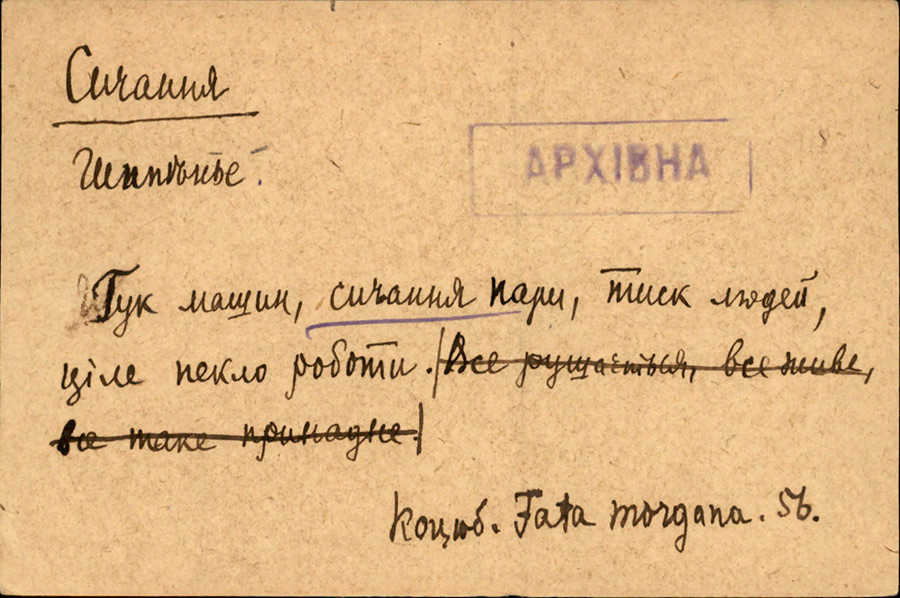 Сичання
АРХІВНА
Шипѣнье.
Гук машин, сичання пари, тиск людей,
ціле пекло роботи. /Все рушається, все живе,
все таке принадне./
Коцюб. Fata morgana. 56.